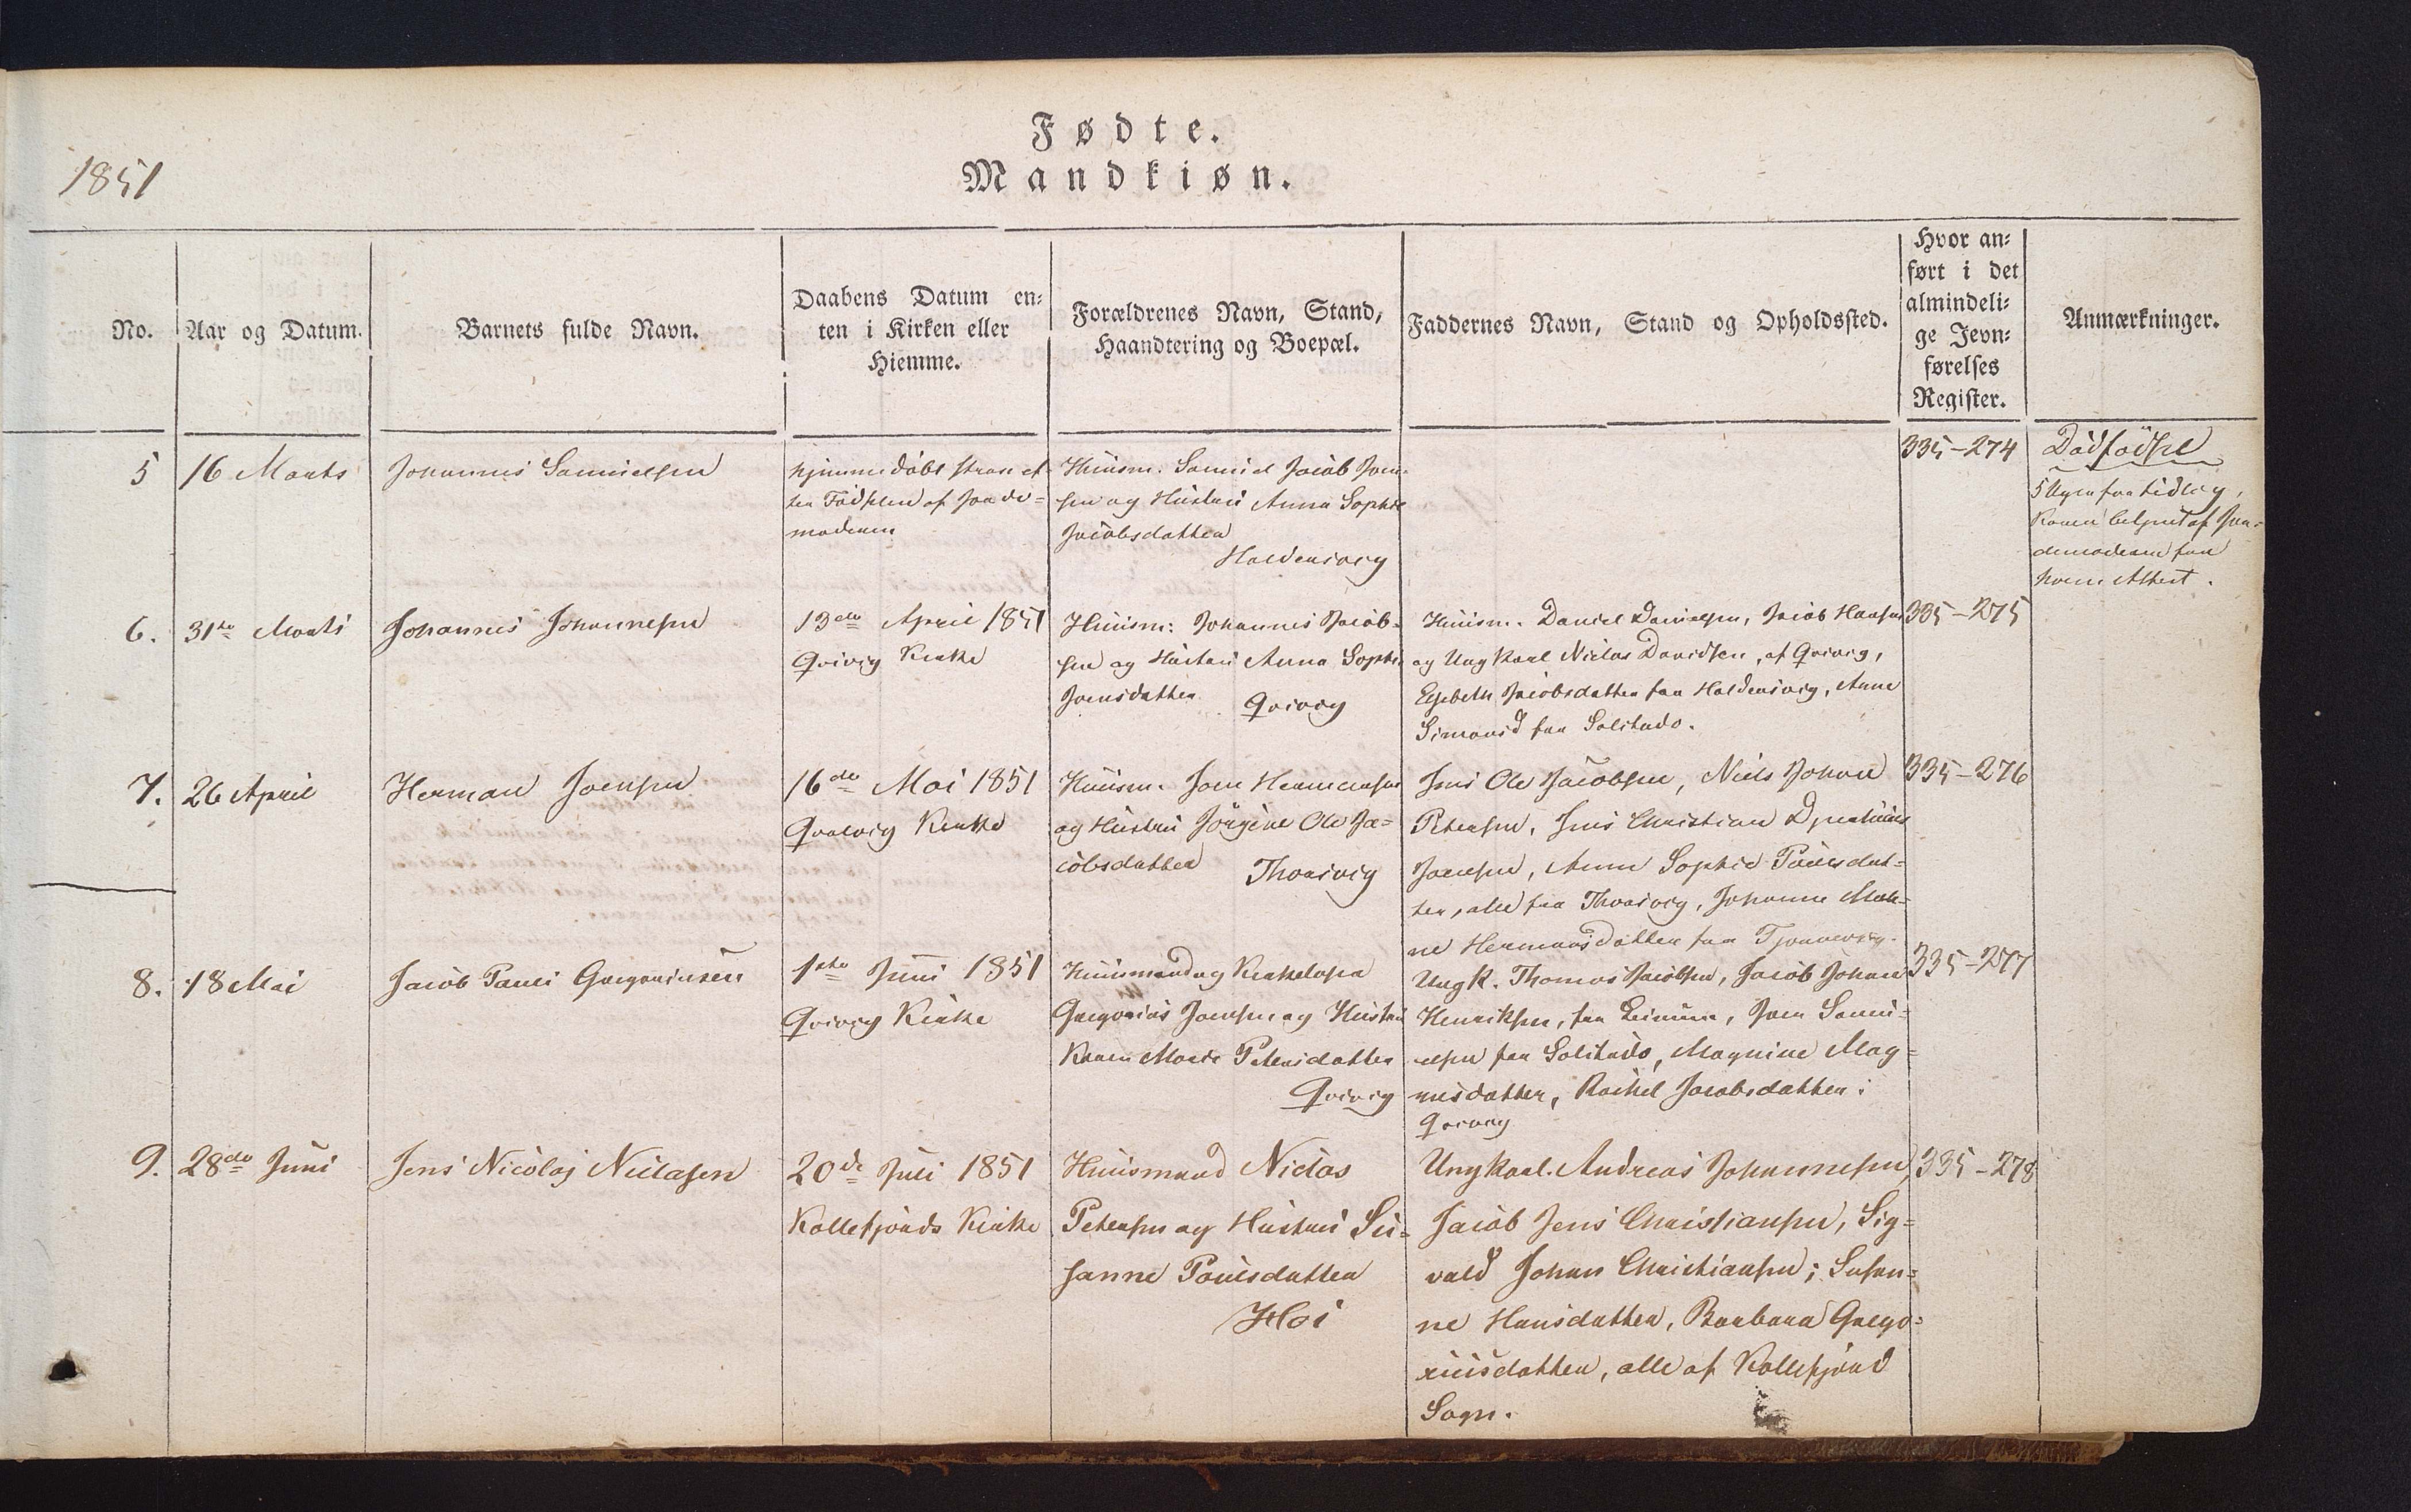 Fødte.
1851
Mandkiøn.
No.
Aar og Datum.
Barnets fulde Navn.
Daabens Datum en-
ten i Kirken eller
Hiemme.
Forældrenes Navn, Stand,
Haandtering og Boepæl.
Faddernes Navn, Stand og Opholdssted.
Hvor an-
ført i det
almindeli-
ge Jevn-
førelses
Register.
Anmærkninger.
5
16 Marts
Johannes Samuelsen
hjemmedöbt strax ef-
ter Födselen af Jorde-
moderen
Huusm. Samuel Jacob Joen-
sen og Hustru Anna Sophie
Jacobsdatter
Haldersvig
335-274
Dödfödsel
5 Uger for tidlig,
Konen betjent af Jor-
demoderen fra
hvem Attest.
6.
31te Marts
Johannes Johannesen
13de April 1851
Qvivig Kirke
Huusm: Johannes Jacob-
sen og Hustru Anna Sophie
Joensdatter
Qvivig
Huusm. Daniel Danielsen, Jacob Hansen
og Ungkarl Niclas Davidsen, af Qvivig,
Elsebeth Jacobsdatter fra Haldersvig, Anne
Simonsd fra Solitudo.
335-275
7.
26 April
Herman Joensen
16de Mai 1851
Qvalvig Kirke
Huusm. Joen Hermansen
og Hustru Jörgine Ole Ja-
cobsdatter
Thorsvig
Jens Ole Jacobsen, Niels Johan
Petersen, Jens Christian Djurhuus
Joensen, Anne Sophie Poulsdat-
ter, alle fra Thorsvig, Johanne Mal-
ne Hermansdatter fra Tjörnevig.
335-276
8.
18 Mai
Jacob Pauli Gregoriusen
1ste Juni 1851
Qvivig Kirke
Huusmand og
Gregorius Joensen og Hustru
Karen Marie Petersdatter
Qvivig
Ungk. Thomas Jacobsen, Jacob Johan
Henriksen, fra Leinum, Joen Samu-
elsen fra Solitudo, Magnine Mag-
nusdatter, Rachel Jacobsdatter i
Qvivig
335-277
9.
28de Juni
Jens Nicolaj Niclasen
20de Juli 1851
Kollefjords Kirke
Huusmand Niclas
Petersen og Hustru Su-
sanne Poulsdatter
Hoi
Ungkarl. Andreas Johannesen,
Jacob Jens Christiansen, Sig-
vald Johan Christiansen; Susan-
ne Hansdatter, Barbara Grego-
riusdatter, alle af Kollefjord
Sogn.
335-278